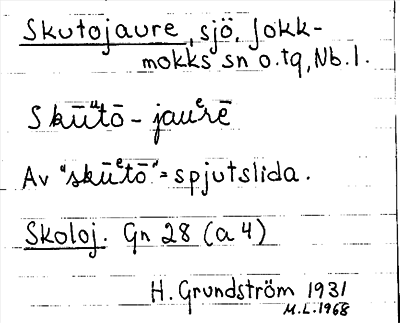 Skutojaure, sjö, Jokk-
mokks sn o. tg, Nb. l.
Skūᵘtō - jauᵉrē
Av "skūᵉtō" = spjutslida.
Skoloj. Gn 28 (a 4)
H. Grundström 1931
M.L. 1968